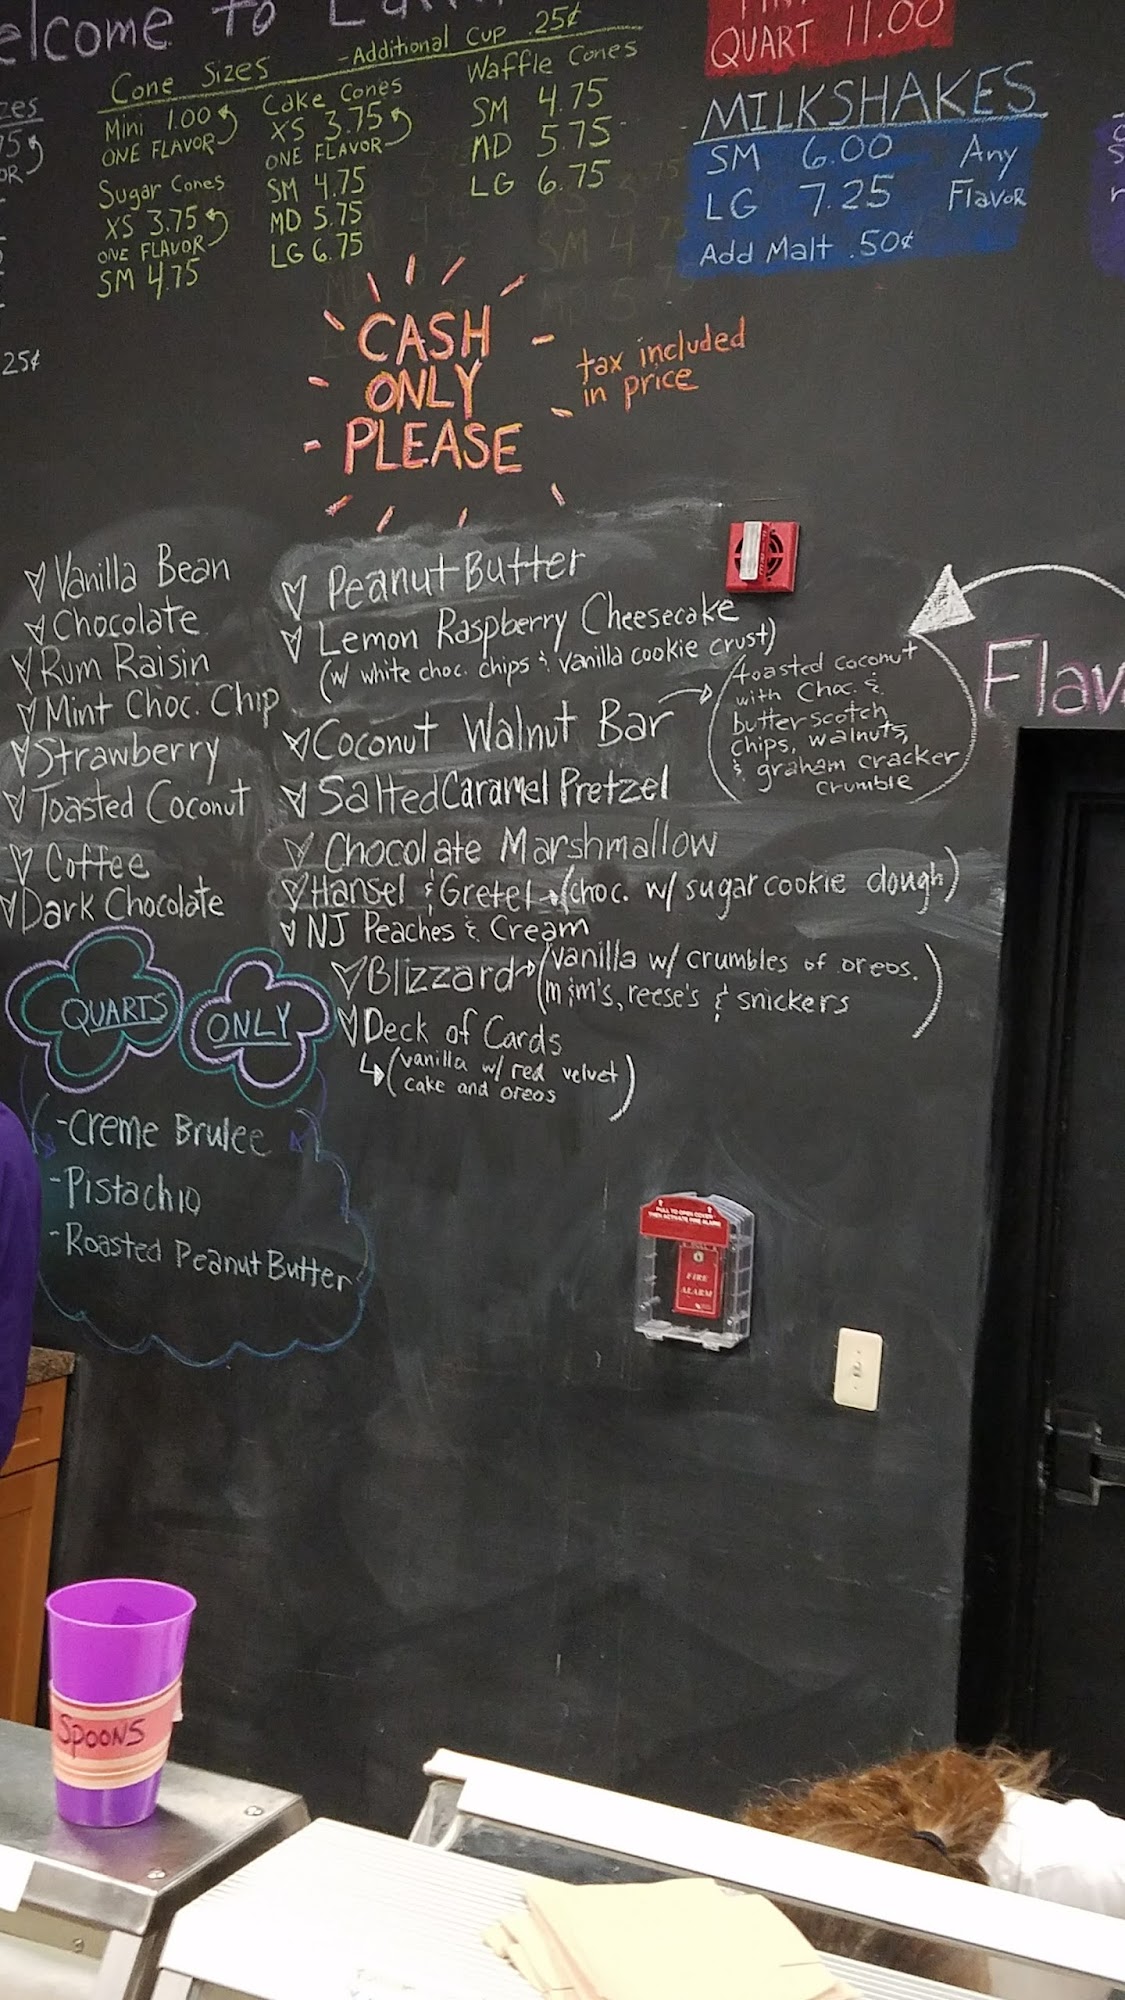 to
Cone Sizes
-Additional Cup .25¢
Mini 1.00
ONE FLAVOR
Sugar Cones
XS 3.75
ONE FLAVOR
SM 4.75
Cake Cones
XS 3.75
ONE FLAVOR
SM 4.75
MD 5.75
LG 6.75
Waffle Cones
SM 4.75
MD 5.75
LG 6.75
QUART 11.00
MILKSHAKES
SM 6.00 Any
LG 7.25 Flavor
Add Malt .50¢
25¢
CASH
ONLY
PLEASE
tax included
in price
Vanilla Bean
Chocolate
Rum Raisin
Mint Choc. Chip
Strawberry
Toasted Coconut
Coffee
Dark Chocolate
Peanut Butter
Lemon Raspberry Cheesecake
(w/ white choc. chips & vanilla cookie crust)
Coconut Walnut Bar
toasted coconut
with Choc. &
butterscotch
chips, walnuts,
& graham cracker
crumble
Salted Caramel Pretzel
Chocolate Marshmallow
Hansel & Gretel → (choc. w/ sugar cookie dough)
NJ Peaches & Cream
Blizzard → (vanilla w/ crumbles of oreos.
m&m's, reese's & snickers)
Deck of Cards
(vanilla w/ red velvet
cake and oreos)
QUARTS
ONLY
-Creme Brulee
-Pistachio
-Roasted Peanut Butter
FIRE
ALARM
SPOONS